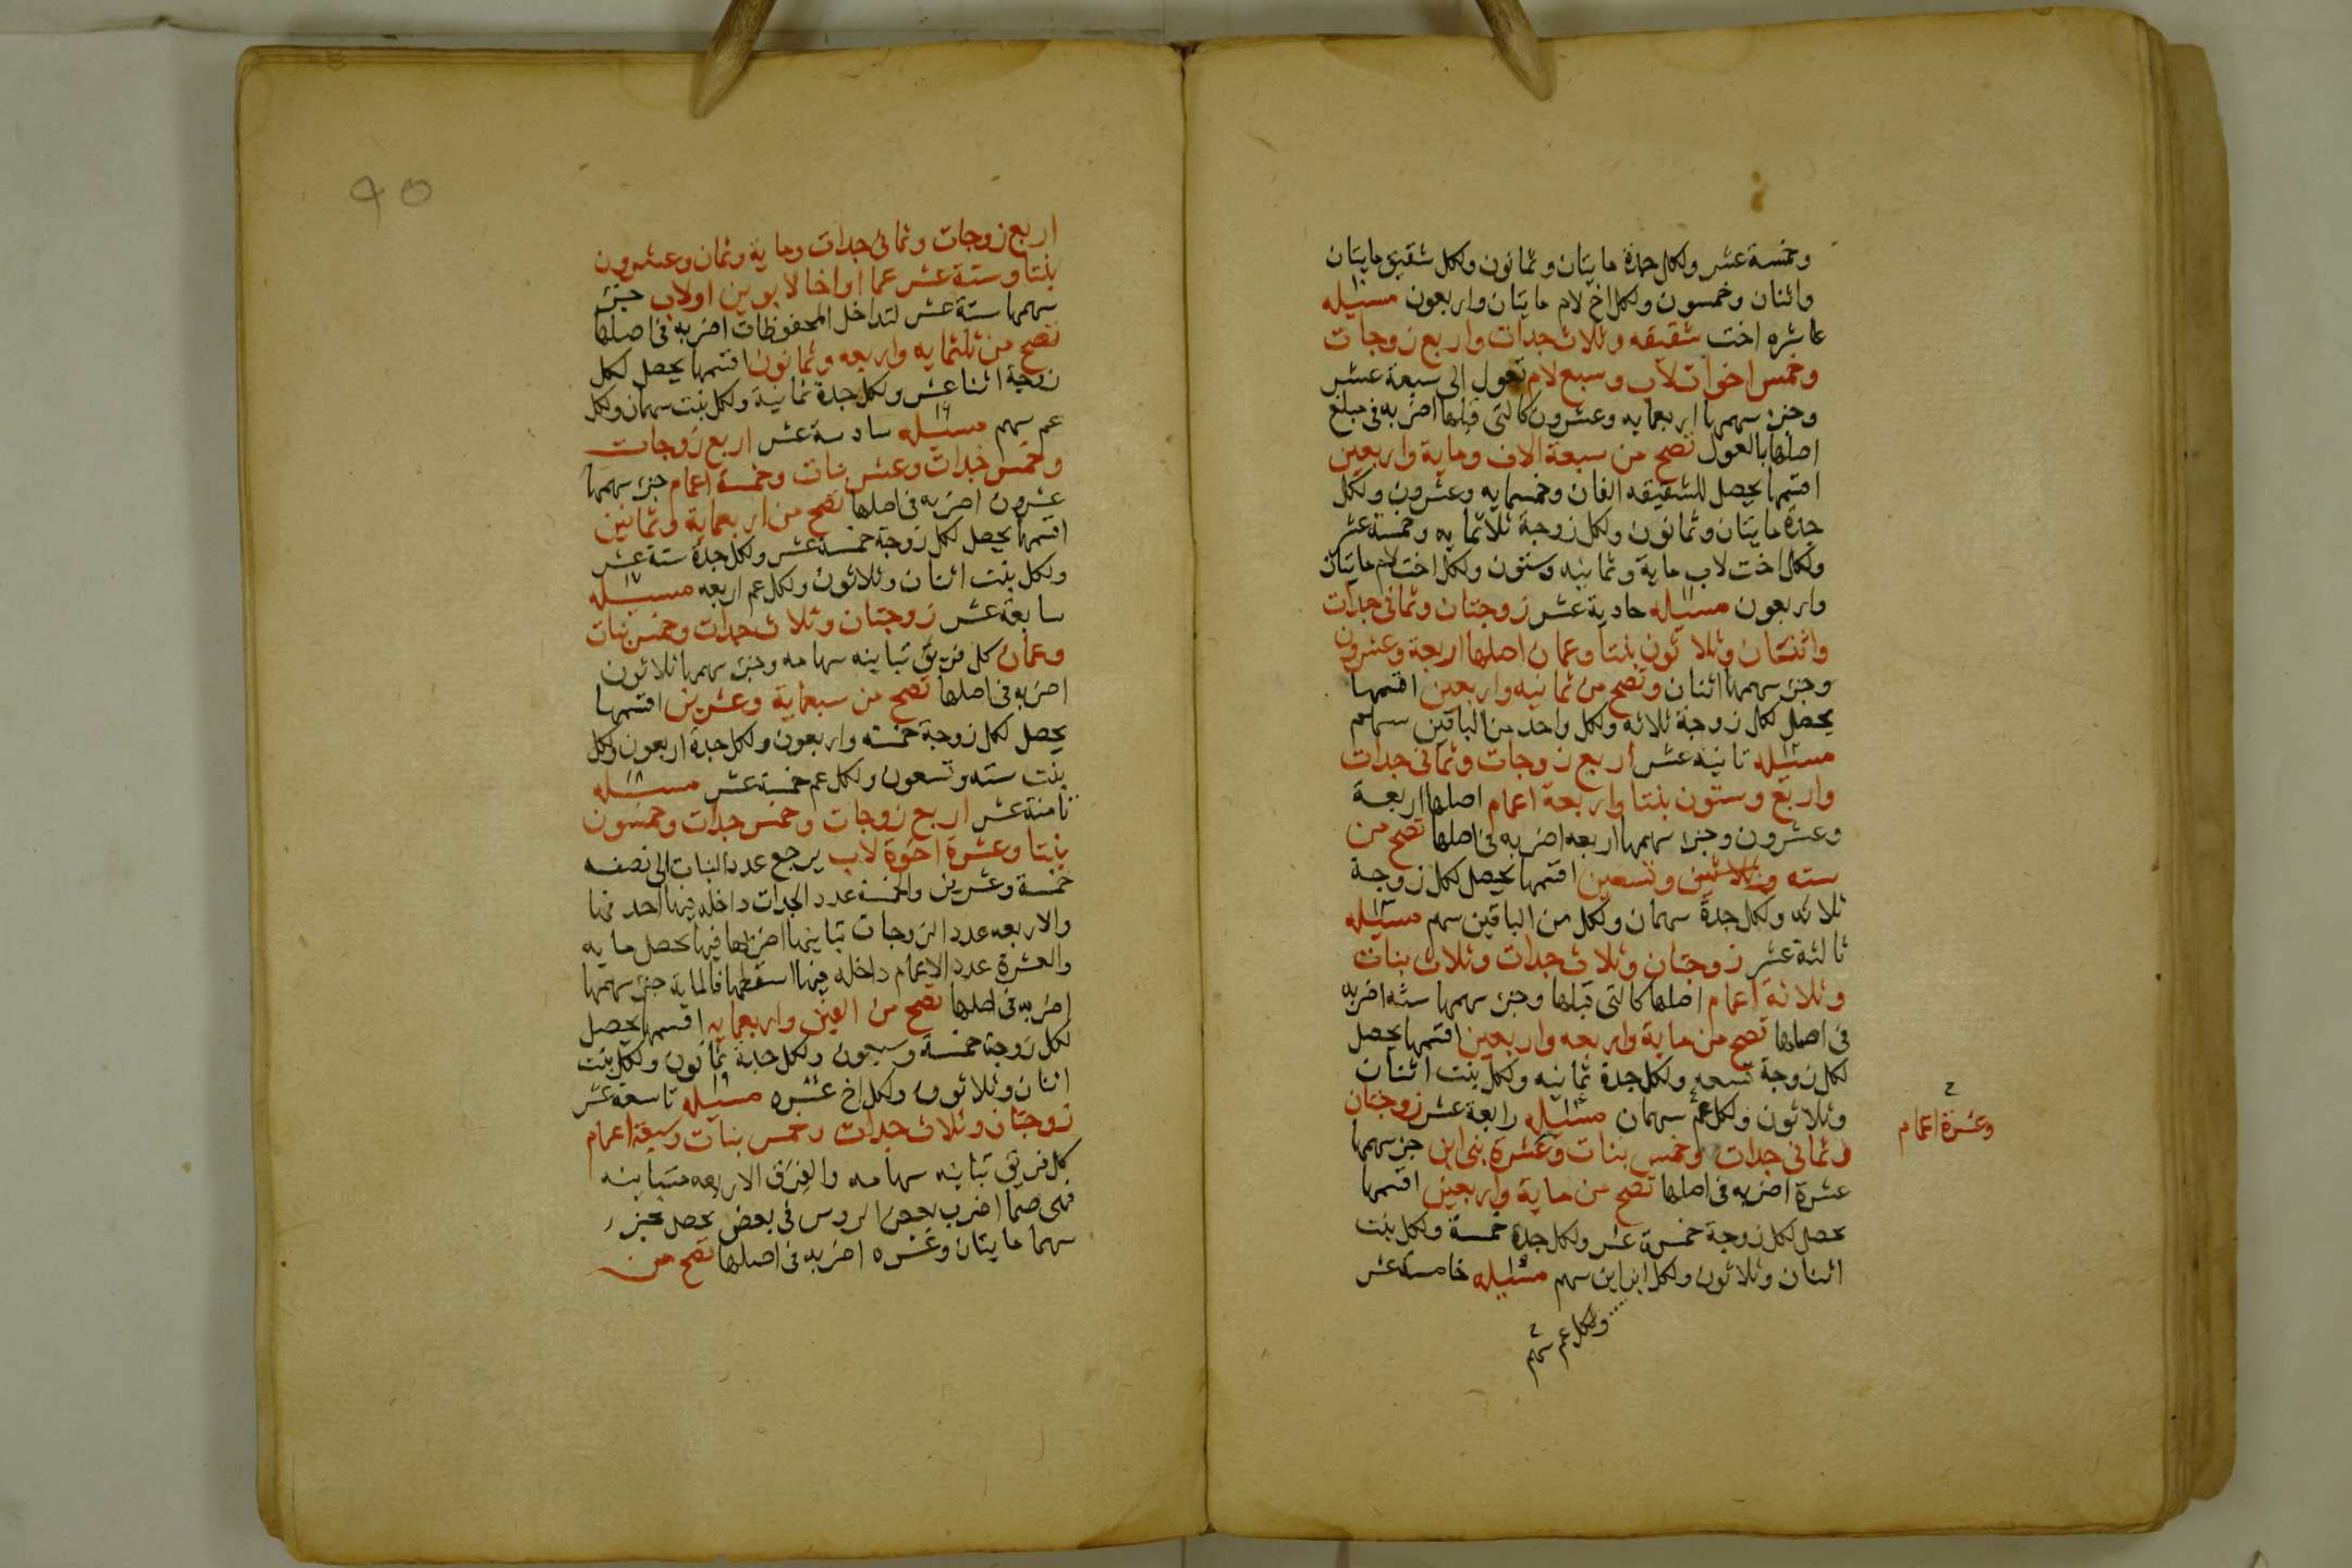 وخمسة عشر ولكل جدة مايتان وثمانون ولكل شقيق مايتان
واثنان وخمسون ولكل اخ لام مايتان واربعون مسئله ١٠
عاشره اخت شقيقه وثلاث جدات واربع زوجات
وخمس اخوات لاب وسبع لام تعول الى سبعة عشر
وجزء سهمها اربعمايه وعشرون كالتى قبلها اضربه فى مبلغ
اصلها بالعول تصح من سبعة الاف وماية واربعين
اقتمها يحصل للشقيقه الفان وخمسمايه وعشرون ولكل
جدة مايتان وثمانون ولكل زوجة ثلاثمايه وخمسة عشر
ولكل اخت لاب ماية وثمانيه وستون ولكل اخت لام مايتان
واربعون مسئله ١١ حادية عشر زوجتان وثمانى جدات
واثنتان وثلاثون بنتا وعمان اصلها اربعة وعشرون
وجزء سهمها اثنان وتصح من ثمانيه واربعين اقتمها
يحصل لكل زوجة ثلاثه ولكل واحد من الباقين سهم
مسئله ١٢ ثانيه عشر اربع زوجات وثمانى جدات
واربع وستون بنتا واربعة اعمام اصلها اربعة
وعشرون وجزء سهمها اربعه اضربه فى اصلها تصح من
سته وثلاثين وتسعين اقتمها يحصل لكل زوجة
ثلاثه ولكل جدة سهمان ولكل من الباقين سهم مسئله ١٣
ثالثة عشر زوجتان وثلاث جدات وثلاث بنات
وثلاثة اعمام اصلها كالتى قبلها وجزء سهمها سته اضربه
فى اصلها تصح من ماية واربعه واربعين اقتمها يحصل
لكل زوجة تسعه ولكل جدة ثمانيه ولكل بنت اثنان
وثلاثون ولكل عم سهمان مسئله ١٤ رابعة عشر زوجتان
وثمانى جدات وخمس بنات وعشرة بنى ابن جزء سهمها
وعشرة اعمام
عشرة اضربه فى اصلها تصح من ماية واربعين اقتمها
يحصل لكل زوجة خمسة عشر ولكل جدة خمسة ولكل بنت
اثنان وثلاثون ولكل ابن ابن سهم مسئله ١٥ خامسة عشر
ولكل عم سهم
اربع زوجات وثمانى جدات وماية وثمان وعشرون
بنتا وستة عشر عما او اخا لابوين او لاب جزء
سهمها ستة عشر لتداخل المحفوظات اضربه فى اصلها
تصح من ثلثمايه واربعه وثمانون اقتمها يحصل لكل
زوجة اثنا عشر ولكل جدة ثمانية ولكل بنت سهمان ولكل
عم سهم مسئله ١٦ سادسة عشر اربع زوجات
وخمس جدات وعشر بنات وخمسة اعمام جزء سهمها
عشرون اضربه فى اصلها تصح من اربعماية وثمانين
اقتمها يحصل لكل زوجة خمسة عشر ولكل جدة ستة عشر
ولكل بنت اثنان وثلاثون ولكل عم اربعه مسئله ١٧
سابعة عشر زوجتان وثلاث جدات وخمس بنات
وعمان كل فريق تباينه سهامه وجزء سهمها ثلاثون
اضربه فى اصلها تصح من سبعماية وعشرين اقتمها
يحصل لكل زوجة خمسه واربعون ولكل جدة اربعون ولكل
بنت سته وتسعون ولكل عم خمسة عشر مسئله ١٨
ثامنة عشر اربع زوجات وخمس جدات وخمسون
بنتا وعشرة اخوة لاب يرجع عدد البنات الى نصفه
خمسة وعشرين والخمسة عدد الجدات داخله فيها
والاربعه عدد الزوجات تباينها اضربها فيها يحصل مايه
والعشرة عدد الاعمام داخله فيها اسقطها فالماية جزء سهمها
اضربه فى اصلها تصح من الفين واربعمايه اقسمها يحصل
لكل زوجة خمسة وسبعون ولكل جدة ثمانون ولكل بنت
اثنان وثلاثون ولكل اخ عشره مسئله ١٩ تاسعة عشر
زوجتان وثلاث جدات وخمس بنات وسبعة اعمام
كل فريق تباينه سهامه والفرق الاربعه متباينه
فهى صما اضرب بعض الروس فى بعض يحصل جزء
سهما مايتان وعشره اضربه فى اصلها تصح من